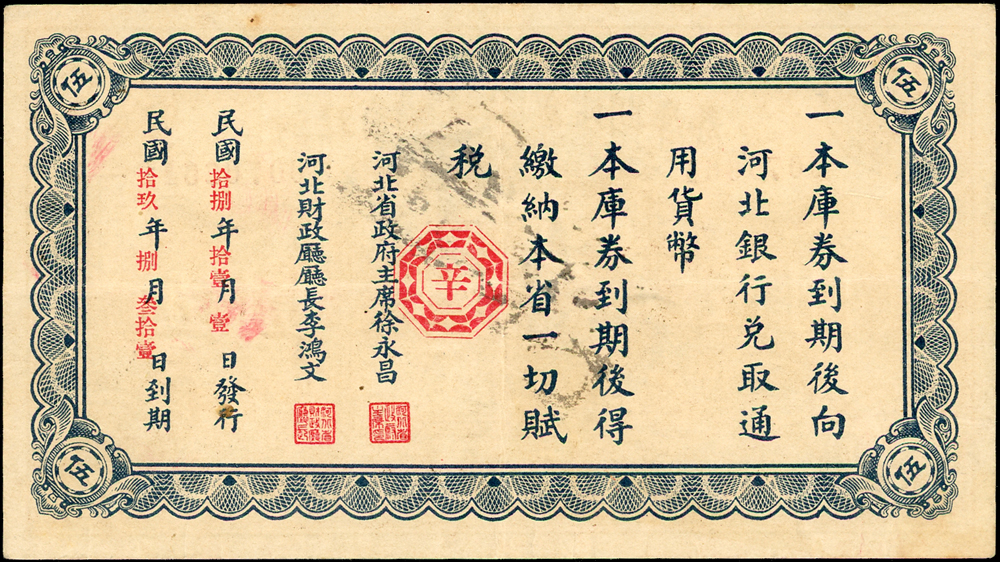 伍
伍
一本庫券到期後向
河北銀行兑取通
用貨幣
一本庫券到期後得
繳納本省一切賦
税
辛
河北省政府主席徐永昌
河北財政廳廳長李鴻文
民國拾捌年拾壹月壹日發行
民國拾玖年捌月叁拾壹日到期
伍
伍